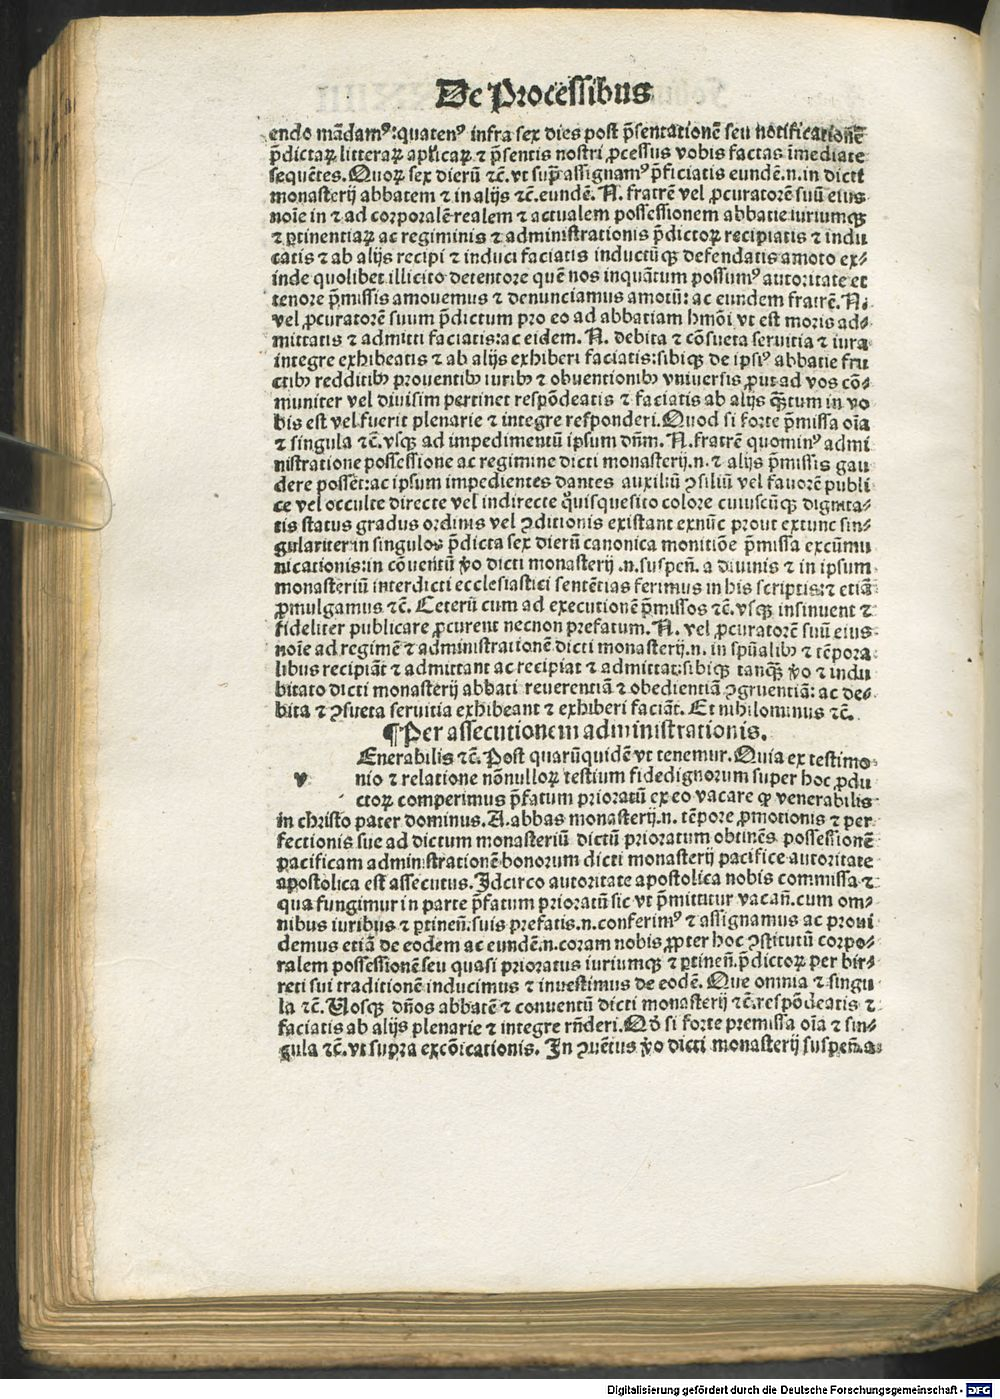 De Processibus
endo mādamꝰ:quatenꝰ infra sex dies post p̄sentationē seu notificationē
p̄dictaꝝ litteraꝝ aplicaꝝ ⁊ p̄sentis nostri ꝓcessus vobis factas īmediate
sequētes. Quoꝝ sex dierū ⁊c̄. vt sup̄ assignamꝰ p̄ficiatis eundē.n.in dicti
monasterij abbatem ⁊ in alijs ⁊c̄.eundē. N. fratrē vel ꝓcuratorē suū eius
noīe in ⁊ ad corporalē realem ⁊ actualem possessionem abbatie iuriumqꝫ
⁊ ꝑtinentiaꝝ ac regiminis ⁊ administrationis p̄dictoꝝ recipiatis ⁊ indu
catis ⁊ ab alijs recipi ⁊ induci faciatis inductūqꝫ defendatis amoto ex⸗
inde quolibet illicito detentore quē nos inquātum possumꝰ autoritate et
tenore p̄missis amouemus ⁊ denunciamus amotū: ac eundem fratrē. N.
vel ꝓcuratorē suum p̄dictum pro eo ad abbatiam hmōi vt est moris ad⸗
mittatis ⁊ admitti faciatis:ac eidem. N. debita ⁊ cōsueta seruitia ⁊ iura
integre exhibeatis ⁊ ab alijs exhiberi faciatis:sibiqꝫ de ipsiꝰ abbatie fru
ctibꝫ redditibꝫ prouentibꝫ iuribꝫ ⁊ obuentionibꝫ vniuersis ꝓut ad vos cō⸗
muniter vel diuisim pertinet respōdeatis ⁊ faciatis ab alijs q̄ꝫtum in vo
bis est vel fuerit plenarie ⁊ integre responderi. Quod si forte p̄missa oīa
⁊ singula ⁊c̄. vsqꝫ ad impedimentū ipsum dn̄m. N. fratrē quominꝰ admi
nistratione possessione ac regimine dicti monasterij.n. ⁊ alijs p̄missis gau
dere posset:ac ipsum impedientes dantes auxiliū ꝯsiliū vel fauorē publi
ce vel occulte directe vel indirecte q̄uisquesito colore cuiuscūqꝫ dignita⸗
tis status gradus ordinis vel ꝯditionis existant exnūc prout extunc sin⸗
gulariter in singulos p̄dicta sex dierū canonica monitiōe p̄missa excūmu
nicationis:in cōuentū ꝟo dicti monasterij .n.suspen̄. a diuinis ⁊ in ipsum
monasteriū interdicti ecclesiastici sentētias ferimus in his scriptis:⁊ etiā
ꝓmulgamus ⁊c̄. Ceterū cum ad executionē p̄missos ⁊c̄. vsqꝫ insinuent ⁊
fideliter publicare ꝓcurent necnon prefatum. N. vel ꝓcuratorē suū eius
noīe ad regimē ⁊ administrationē dicti monasterij.n. in spūalibꝫ ⁊ tēpora
libus recipiāt ⁊ admittant ac recipiat ⁊ admittat:sibiqꝫ tanqꝫ̄ ꝟo ⁊ indu
bitato dicti monasterij abbati reuerentiā ⁊ obedientiā ꝯgruentiā: ac de⸗
bita ⁊ ꝯsueta seruitia exhibeant ⁊ exhiberi faciāt. Et nihilominus ⁊c̄.
¶Per assecutionem administrationis.
v Enerabilis ⁊c̄. Post quarūquidē vt tenemur. Quia ex testimo⸗
nio ⁊ relatione nōnulloꝝ testium fidedignorum super hoc ꝓdu
ctoꝝ comperimus p̄fatum prioratū ex eo vacare qꝫ venerabilis
in christo pater dominus. A. abbas monasterij.n. tēpore ꝓmotionis ⁊ per
fectionis sue ad dictum monasteriū dictū prioratum obtinēs possessionē
pacificam administrationē bonorum dicti monasterij pacifice autoritate
apostolica est assecutus. Idcirco autoritate apostolica nobis commissa ⁊
qua fungimur in parte p̄fatum prioratū sic vt p̄mittitur vacan̄. cum om⸗
nibus iuribus ⁊ ꝑtinen̄.suis prefatis.n.conferimꝰ ⁊ assignamus ac proui
demus etiā de eodem ac eundē.n.coram nobis ꝓpter hoc ꝯstitutū corpo⸗
ralem possessionē seu quasi prioratus iuriumqꝫ ⁊ ꝑtinen̄.p̄dictoꝝ per bir⸗
reti sui traditionē inducimus ⁊ inuestimus de eodē. Que omnia ⁊ singu
la ⁊c̄. Vosqꝫ dn̄os abbatē ⁊ conuentū dicti monasterij ⁊c̄.respōdeatis ⁊
faciatis ab alijs plenarie ⁊ integre rn̄deri. Qd̓ si forte premissa oīa ⁊ sin⸗
gula ⁊c̄. vt supra excōicationis. In ꝯuētus ꝟo dicti monasterij suspen̄.a
Digitalisierung gefördert durch die Deutsche Forschungsgemeinschaft - DFG